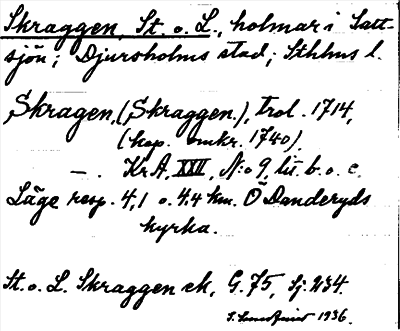 Skraggen, St. o. L., holmar i Salt-
sjön; Djursholms stad; Sthlms l.
Skragen, (Skraggen.), trol. 1714,
(kop. omkr. 1740).
— . KrA, XXII, N:o 9, lit. b. o. c.
Läge resp. 4,1 o. 4,4 km. Ö Danderyds
kyrka.
St. o. L. Skraggen ek, G. 75, Sj. 234.
1936.